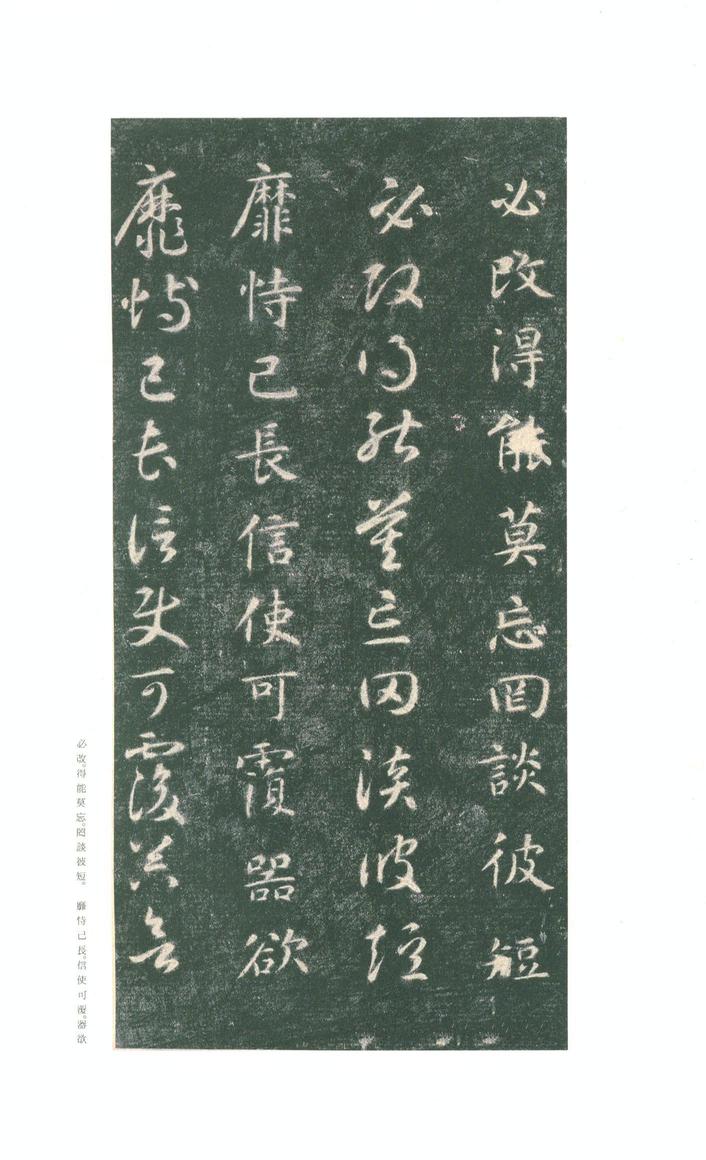 必改得能莫忘罔談彼短
必改得能莫忘罔談彼短
靡恃己長信使可覆器欲
靡恃己長信使可覆器欲
必改。得能莫忘。罔談彼短。　靡恃己長。信使可覆。器欲